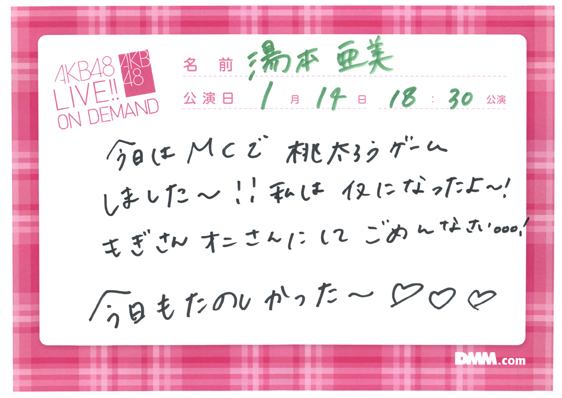 AKB48
LIVE!!
ON DEMAND
AKB
48
名前 湯本 亜美
公演日 1月14日 18:30公演
今日はMCで 桃太ろうゲーム
しました〜!! 私は 犬になったよ〜!
もぎさん オニさんにして ごめんなさい。。。!
今日もたのしかった〜♡♡♡
DMM.com